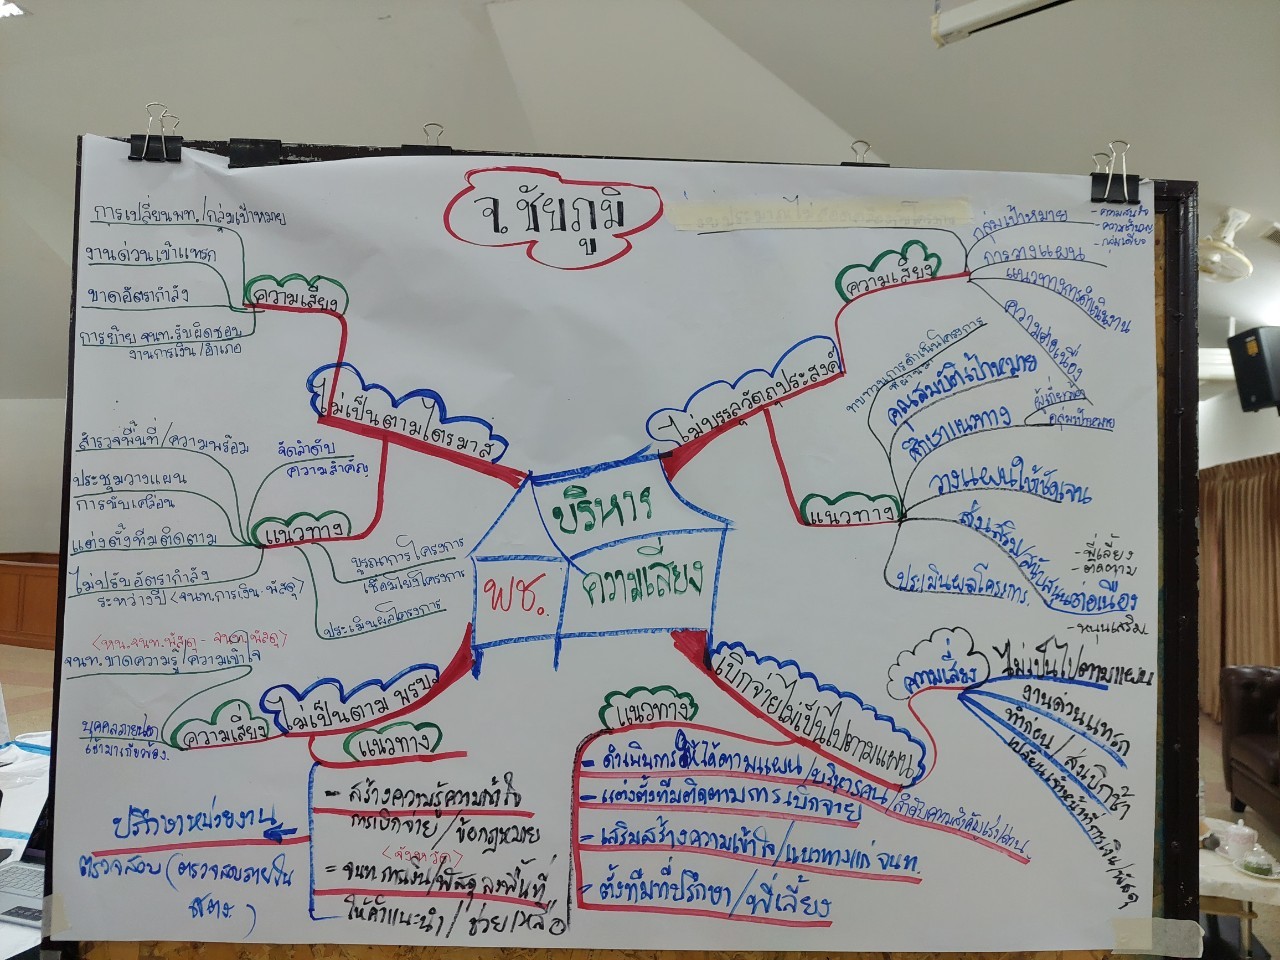 จ.ชัยภูมิ
บริหาร
ความเสี่ยง
พช.
ไม่เป็นตามไตรมาส
ความเสี่ยง
การเปลี่ยนพท./กลุ่มเป้าหมาย
งานด่วนเข้าแทรก
ขาดอัตรากำลัง
การย้าย จนท.รับผิดชอบ
งานการเงิน/อำเภอ
แนวทาง
สำรวจพื้นที่/ความพร้อม
จัดลำดับ
ความสำคัญ
ประชุมวางแผน
การขับเคลื่อน
แต่งตั้งทีมติดตาม
ไม่ปรับอัตรากำลัง
ระหว่างปี <จนท.การเงิน-พัสดุ>
บูรณาการโครงการ
เชื่อมโยงโครงการ
ประเมินผลโครงการ
ไม่บรรลุวัตถุประสงค์
ความเสี่ยง
กลุ่มเป้าหมาย
- ความสนใจ
- ความชำนาญ
- กลุ่มเดียว
การวางแผน
แนวทางการดำเนินงาน
ความต่อเนื่อง
แนวทาง
ทบทวนการดำเนินโครงการ
ที่ผ่านมา
คุณสมบัติเป้าหมาย
ศึกษาแนวทาง
ผู้เกี่ยวข้อง
กลุ่มเป้าหมาย
วางแผนให้ชัดเจน
ส่งเสริมสนับสนุนต่อเนื่อง
- พี่เลี้ยง
- ติดตาม
- หนุนเสริม
ประเมินผลโครงการ
ไม่เป็นตาม พรบ.
ความเสี่ยง
<หน.จนท.พัสดุ - จนท.พัสดุ>
จนท.ขาดความรู้/ความเข้าใจ
บุคคลภายนอก
เข้ามาเกี่ยวข้อง.
แนวทาง
- สร้างความรู้ความเข้าใจ
การเบิกจ่าย/ข้อกฎหมาย
<จังหวัด>
- จนท.การเงิน/พัสดุ ลงพื้นที่
ให้คำแนะนำ/ช่วยเหลือ
ปรึกษาหน่วยงาน
ตรวจสอบ (ตรวจสอบภายใน
สตง.)
เบิกจ่ายไม่เป็นไปตามแผน
ความเสี่ยง
ไม่เป็นไปตามแผน
งานด่วนแทรก
ทำก่อน/ส่งเบิกช้า
เปลี่ยนเจ้าหน้าที่การเงิน/พัสดุ
แนวทาง
- ดำเนินการให้ได้ตามแผน/บริหารคน/ลำดับความสำคัญเร่งด่วน
- แต่งตั้งทีมติดตามการเบิกจ่าย
- เสริมสร้างความเข้าใจ/แนวทางแก่ จนท.
- ตั้งทีมที่ปรึกษา/พี่เลี้ยง